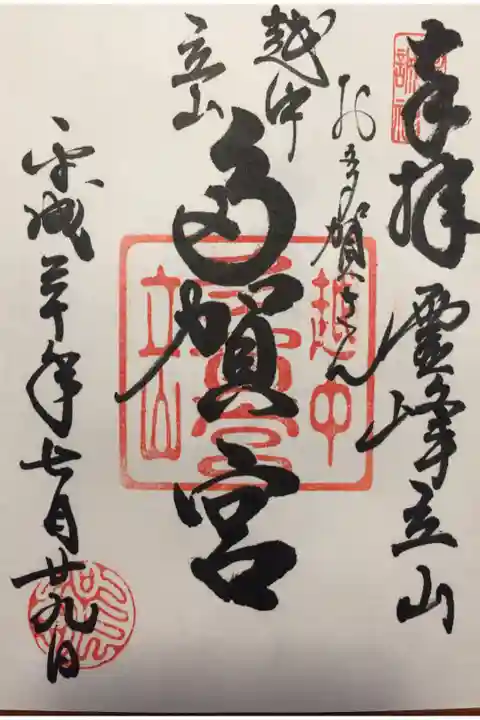 奉拝 霊峰立山
お多賀さん
越中
立山
多賀宮
平成三十年七月廿九日
越中
多賀宮
立山